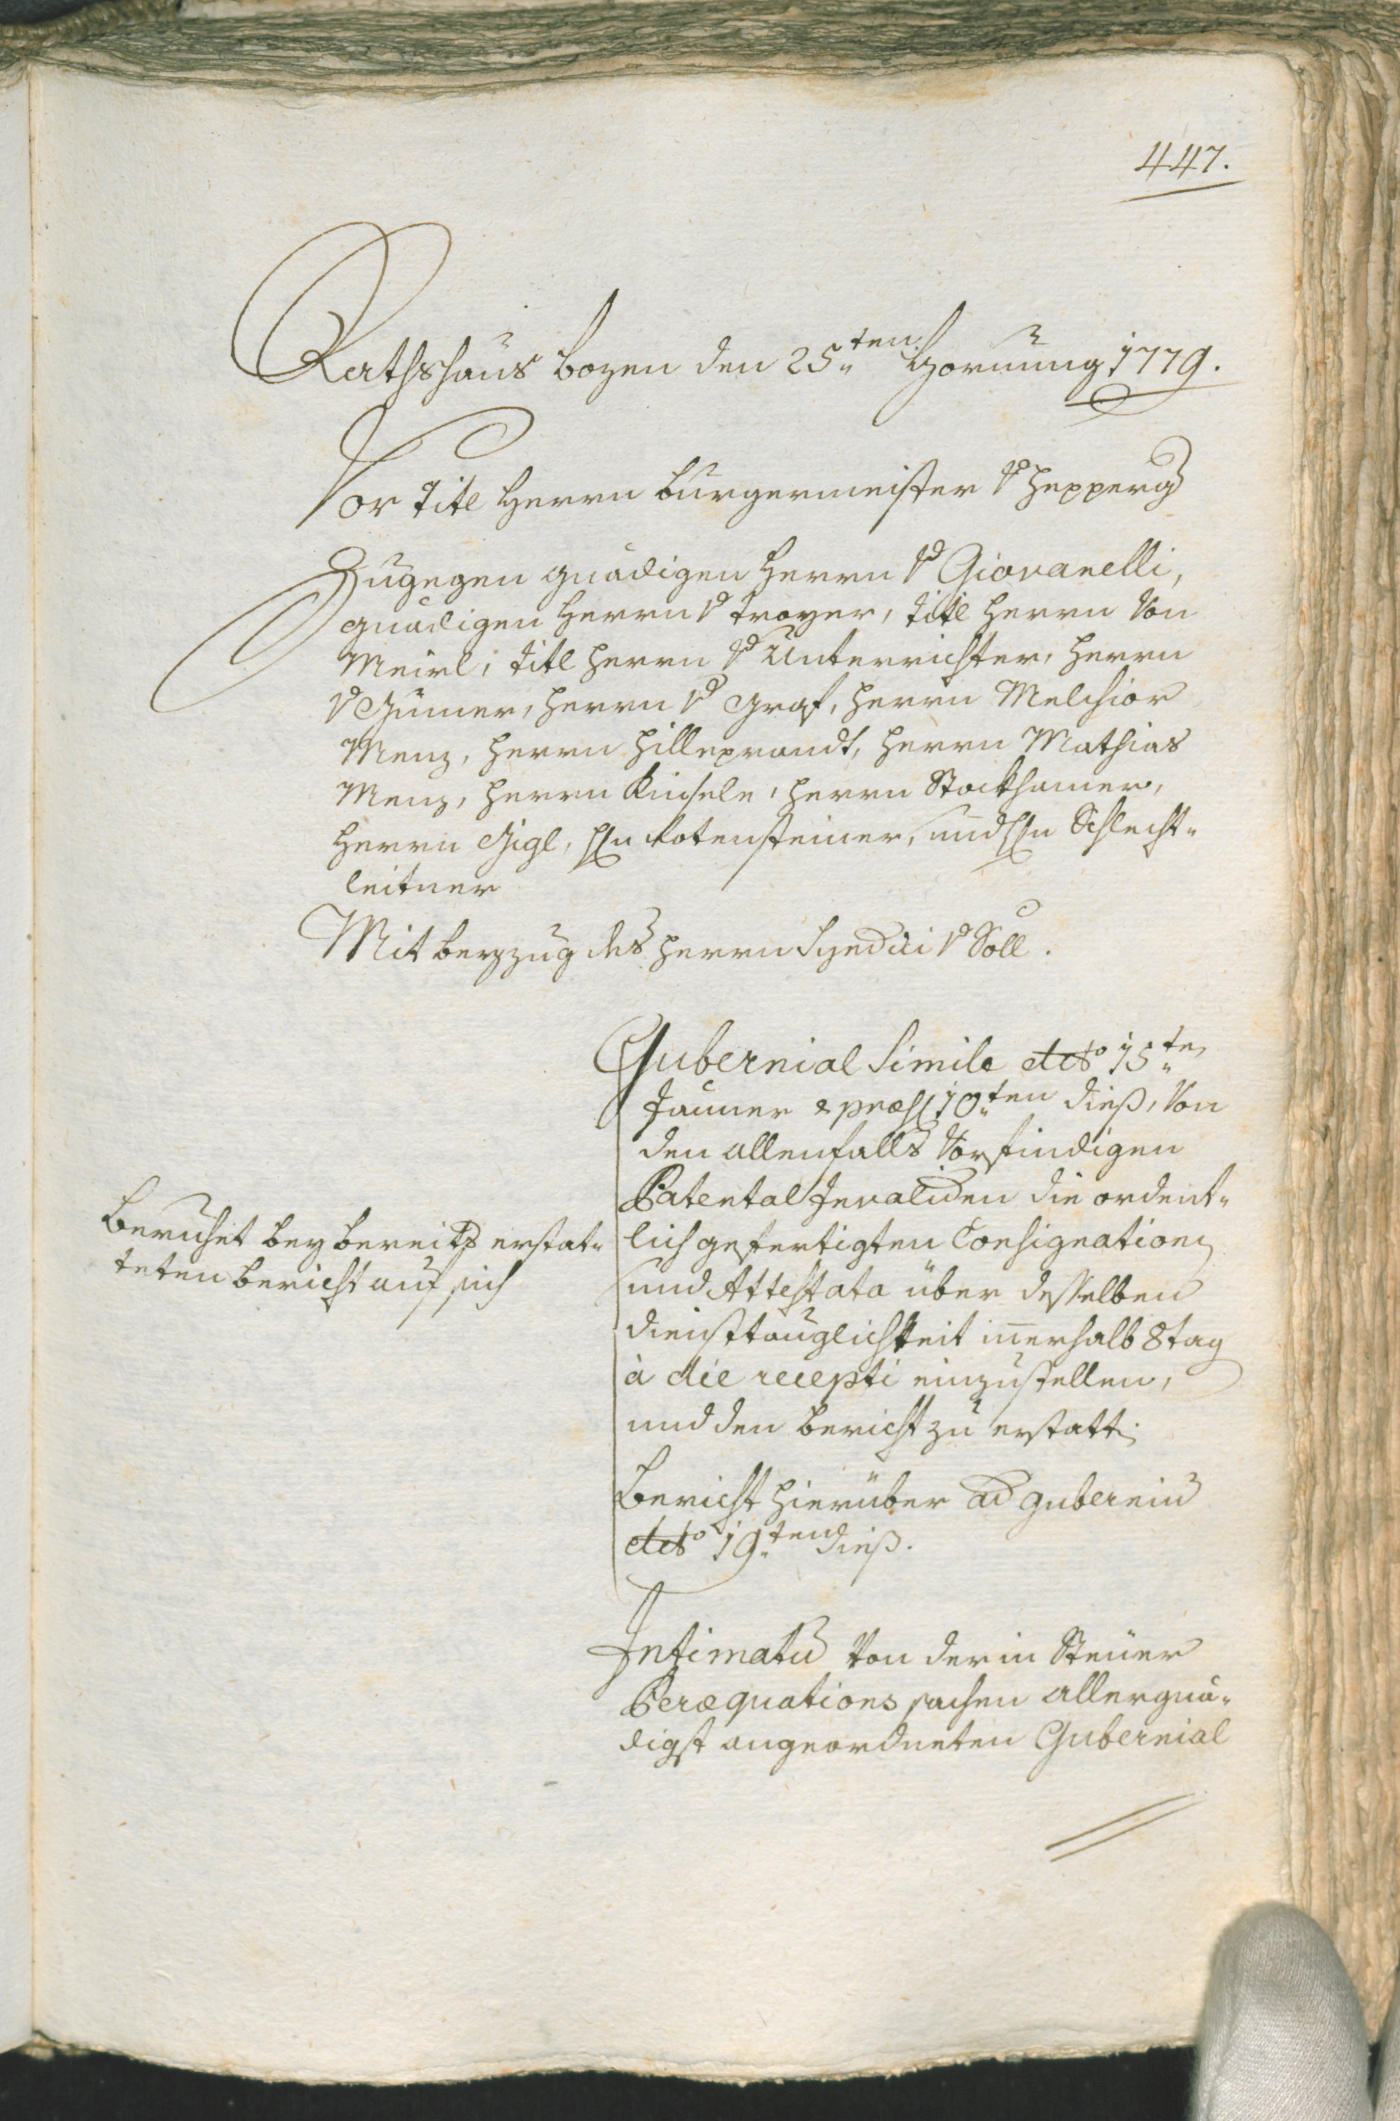 447.
Rathshaus Bozen den 25.ten Hornung 1779.
Vor Titl Herrn Burgermeister v Hepperg
Zugegen gnädigen Herrn v Giovanelli,
gnädigen Herrn v Troyer, titl Herrn von
Meirl, titl Herrn v Unterrichter, Herrn
v Gumer, Herrn v Graf, Herrn Melchior
Menz, Herrn Hilleprandt, Herrn Mathias
Menz, Herrn Kinsele, Herrn Stockhamer,
Herrn Gigl, Hn Rotensteiner, und Hn Schlecht-
leitner
Mit beyzug des Herrn Syndici v Söll.
Gubernial Simile dto 15.ten
Jänner & præs 10.ten dieß, von
den allenfalls vorfindigen
Patental Invaliden die ordent-
lich gefertigten Consignationen
und Attestata über desselben
diensttauglichkeit innerhalb 8 tag
à die recepti einzustellen,
und den bericht zu erstatten
Beruhet bey bereits erstat-
teten bericht auf sich
Bericht hierüber ad gubernium
dto 19.ten dieß.
Intimatum von der in Steuer
Peræquations sachen allergnä-
digst angeordneten Gubernial